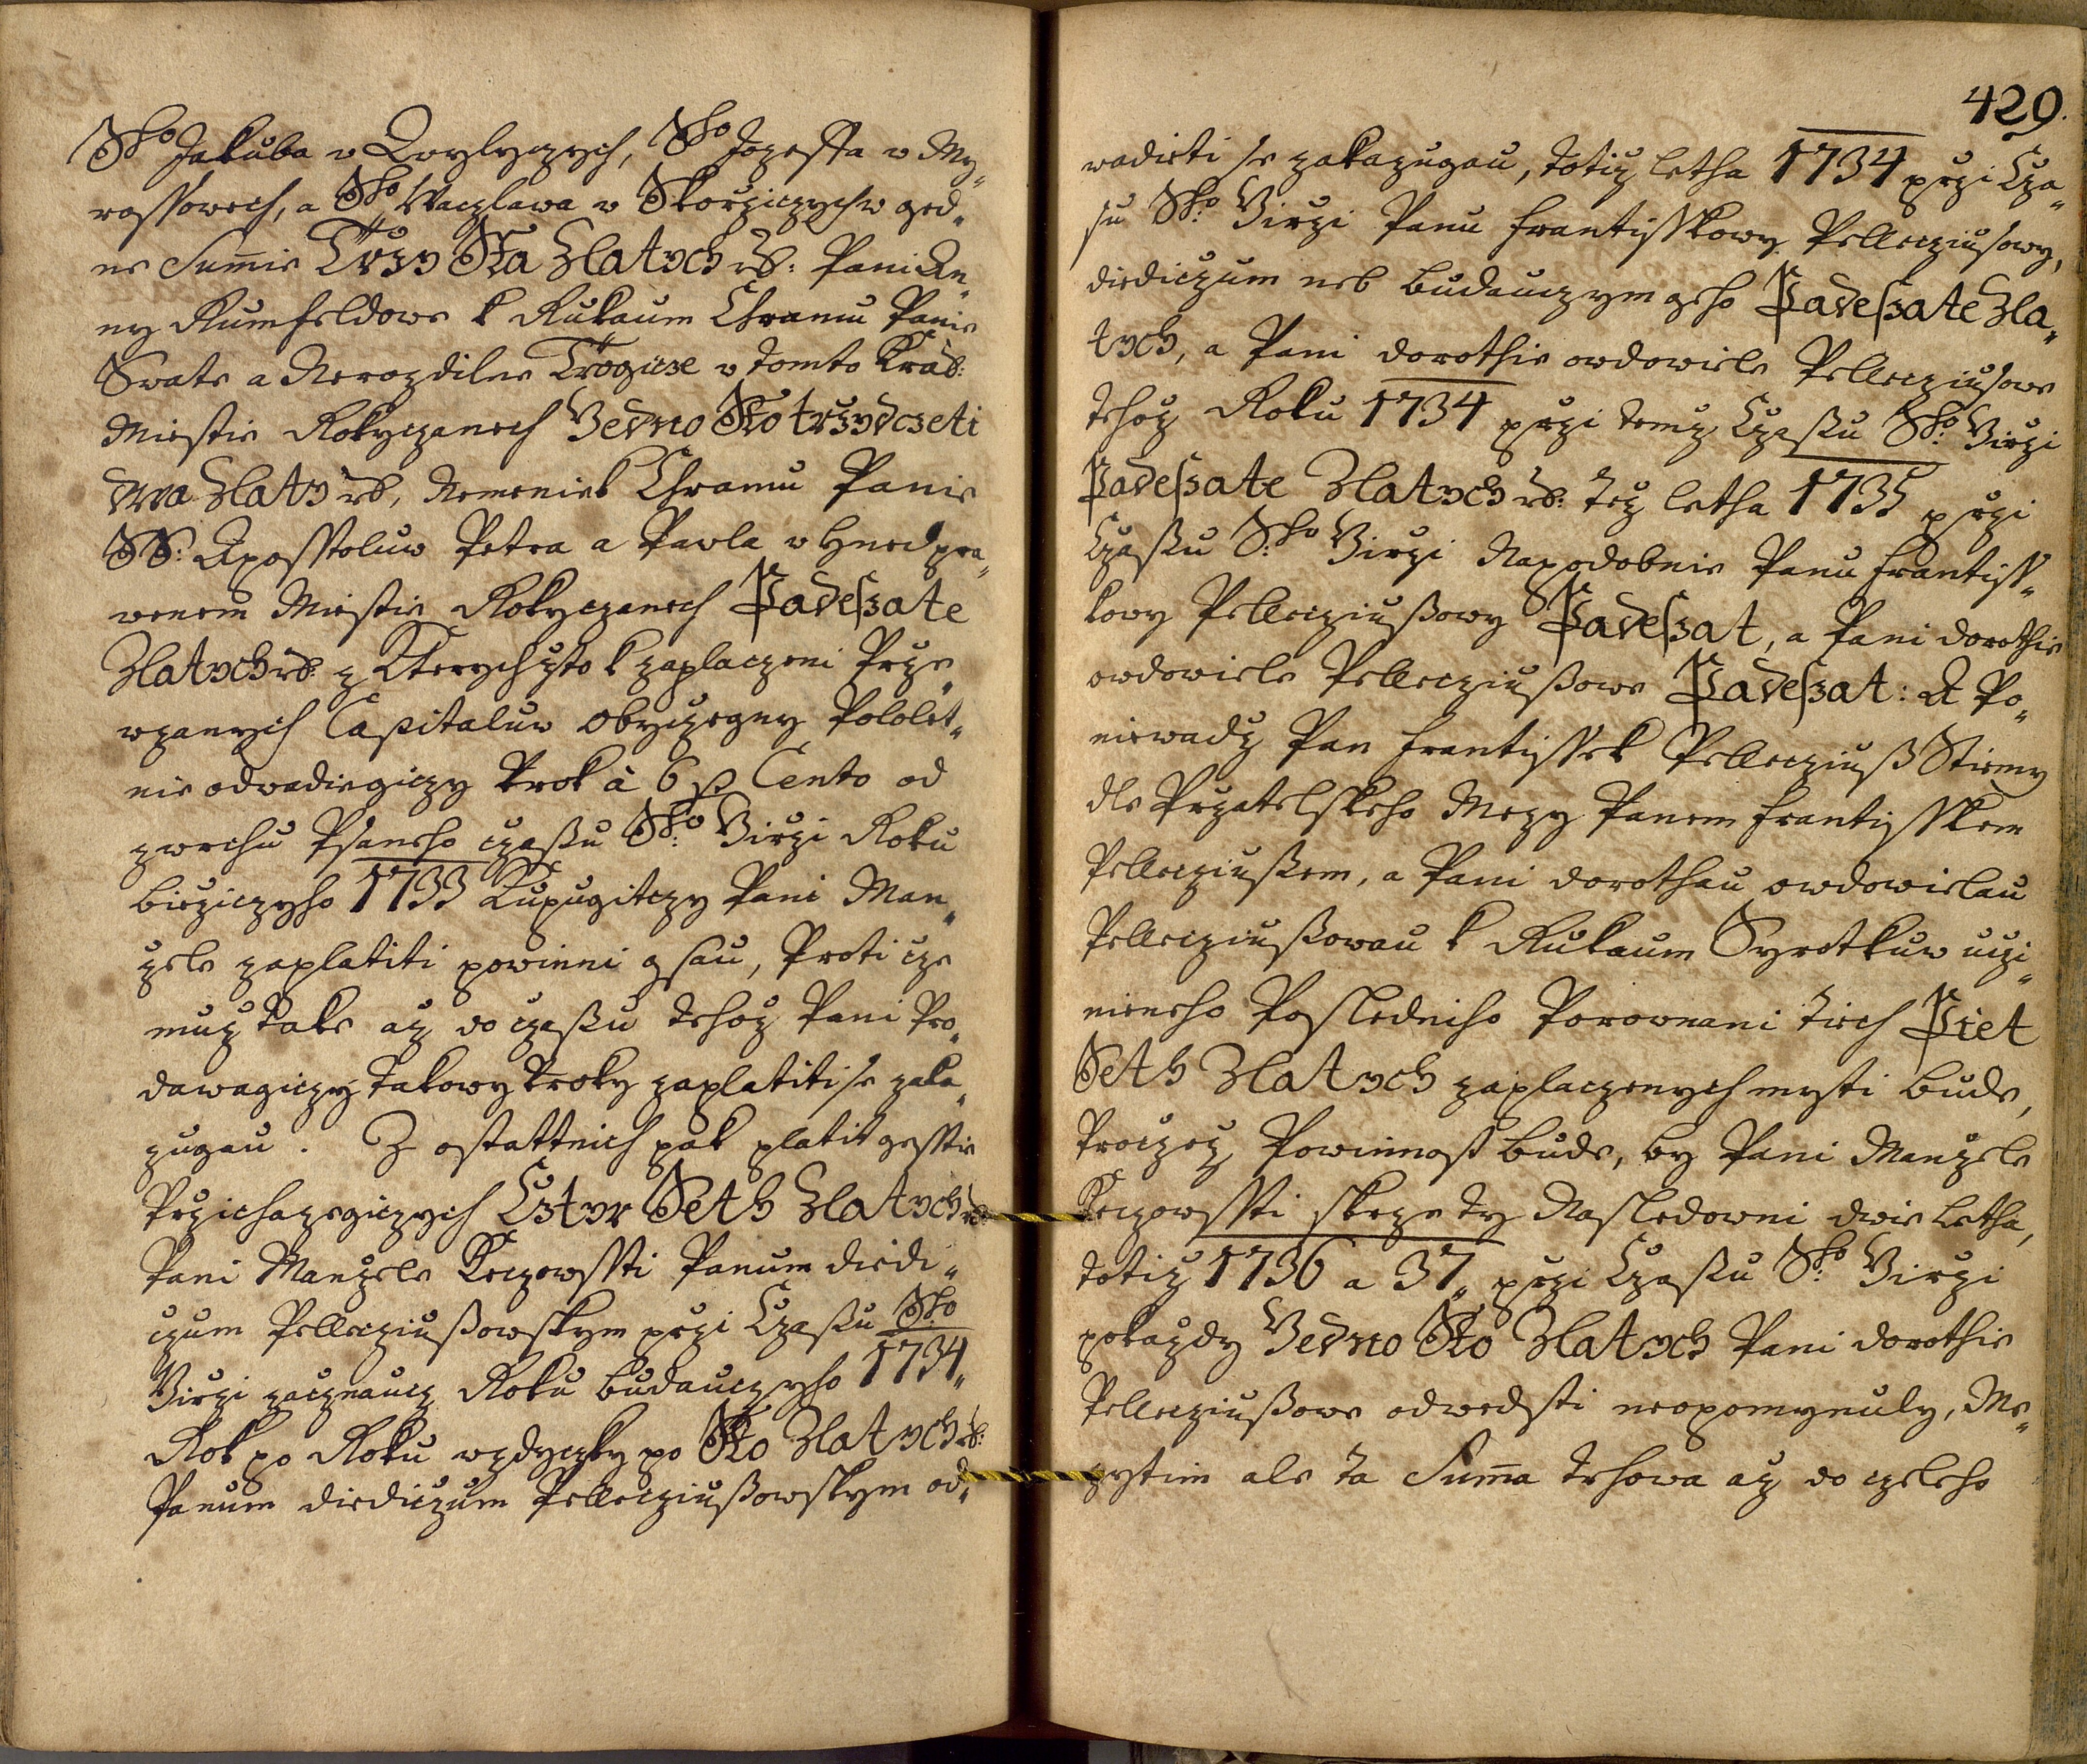 Sho Jakuba v Qvylyczych, Sho Jozeffa v My„
rossowech, a Sho Waczlawa v Skorziczych w ged„
ne Sum̄ie Trzy Sta Zlatych rß: Pani An„
ny Rumfeldowe k Rukaum Chramu Panie
Swate a Nerozdilne Trogicze v tomto Kral:
Miestie Rokyczanech Gedno Sto trzydczeti
dwa Zlaty rß, Nemeniek Chramu Panie
SS: Aposstoluw Petra a Pavla v hned pra„
wenem Miestie Rokyczanech Padeßate
Zlatych rß: z Kterychzto k zaplaczeni Prze„
wzanych Capitaluw obyczegny Pololet„
nie odvadiegiczy Urok à 6 p Cento od
zwrchu Psaneho czaßu Sho: Girzi Roku
biezicziho 1733 Kupugitczy Pani Man„
zele zaplatiti powinni gsau, Proti cze
muz take az do czaßu tehoz Pani Pro„
dawagiczy takowy Uroky zaplatiti se zaka„
zugau. Z ostattnich pak platit gesstie
Przichazegiczych Cztyr Seth Zlatych rß:
Pani Manzele Reczowssti Panum diedi„
czum Pelleeziußowskym przi Czaßu Sho
Girzi zacznaucz Roku budauczyho 1734„
Rok po Roku wzdyczky po Sto Zlatych rß:
Panum diediczum Pelleeziußowskym od„
429.
wadieti se zakazugau, totiz letha 1734 przi Cza„
su Sho: Girzi Panu Frantisskowy Pelleeziusowy,
diediczum neb budauczym geho Padeßate Zla„
tych, a Pani Dorothie owdowiele Pelleeziusowe
tehoz Roku 1734 przi temz Czaßu Sho: Girzi
Padeßate Zlatych rß: Tez letha 1735 przi
Czaßu S:ho Girzi Napodobnie Panu Frantiss„
kowy Pelleeziußowy Padeßat, a Pani Dorothie
owdowiele Pelleeziußowe Padeßat: A Po„
niewadz Pan Frantissek Pelleeziuß Stiemy
dle Przatelskeho Mezy Panem Frantisskem
Pelleeziußem, a Pani Dorothau owdowielau
Pelleeziußowau k Rukaum Syrotkuw uczi„
nieneho Posledniho Porownani tiech Piet
Seth Zlatych zaplaczenych mysti bude,
Proczez Powinnost bude, by Pani Manzele
Reczowssti skrze ty Nasledowni dwie letha,
totiz 1736 a 37„ przi Czaßu Sho: Girzi
pokazdy Gedno Sto Zlatych Pani Dorothie
Pelleeziußowe odwedsti neopomynuly, Me„
zytim ale ta Sum̄a trhowa az do czeleho